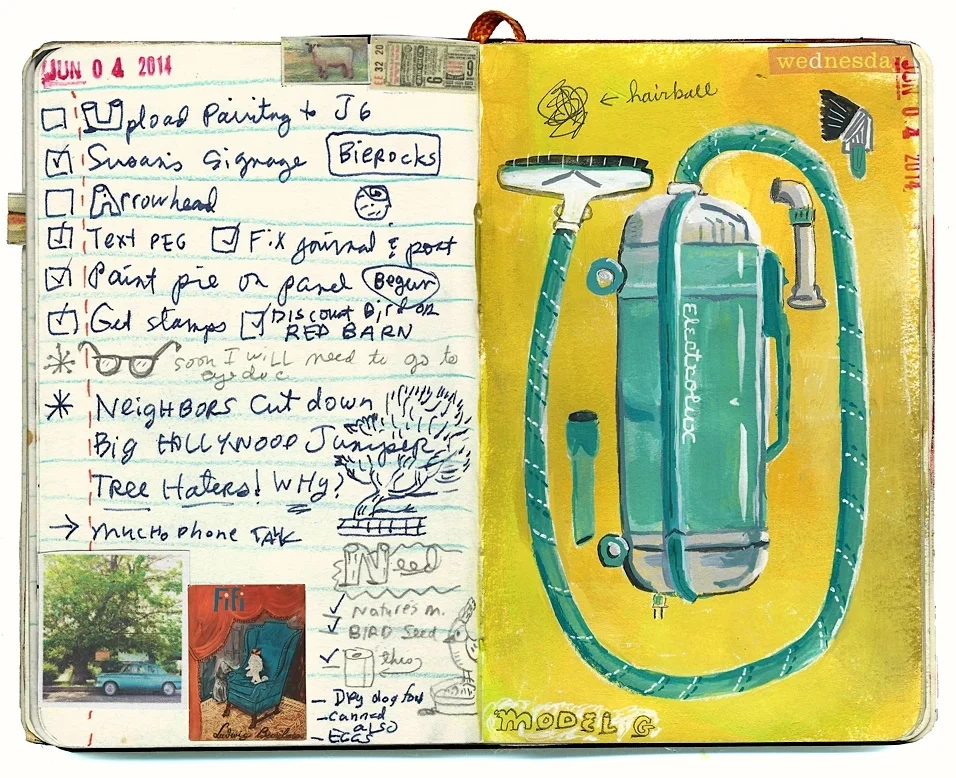 JUN 04 2014
Upload Painting to J6
Susan's Signage BIEROCKS
Arrowhead
Text PEG Fix journal & post
Paint pie on panel Begun
Get stamps Discount Bird or
RED BARN
soon I will need to go to
eye doc
NEIGHBORS Cut down
Big HOLLYWOOD Juniper
TREE Haters! WHy?
→ mucho phone TALK
Need
Nature's m.
BIRD Seed
theo
- DRy dog food
- canned
also
- EGGS
FiFi
Ludwig
wednesda
JUN 04 2014
← hairball
Electrolux
MODEL G